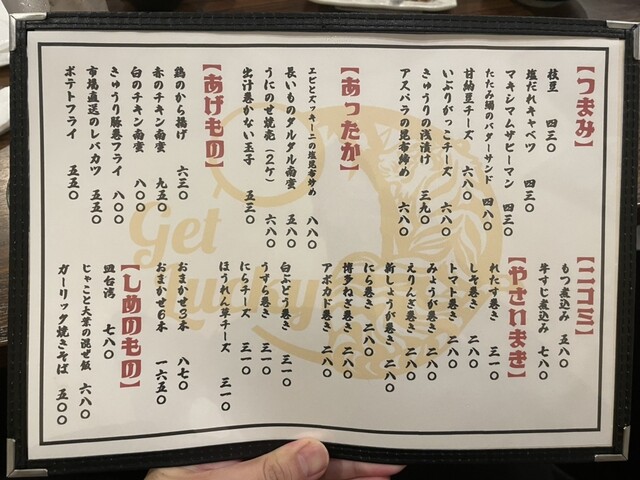 【つまみ】
枝豆 四三〇
塩だれキャベツ 四三〇
マキシマムザピーマン 四三〇
たたみ鰯のバターサンド 四八〇
甘納豆チーズ 六八〇
いぶりがっこチーズ 六八〇
きゅうりの浅漬け 三九〇
アスパラの昆布締め 六八〇
【あったか】
エビとズッキーニの塩昆布炒め 八八〇
長いものタルタル南蛮 五八〇
うにのせ焼売(2ケ) 六八〇
出汁巻かない玉子 五三〇
【あげもの】
鶏のから揚げ 六三〇
赤のチキン南蛮 九五〇
白のチキン南蛮 八八〇
きゅうり豚巻フライ 八〇〇
市場直送のレバカツ 五五〇
ポテトフライ 五五〇
【ニコミ】
もつ煮込み 五八〇
牛すじ煮込み 七八〇
【やさいまき】
れたす巻き 三一〇
しそ巻き 二八〇
トマト巻き 二八〇
みょうが巻き 二八〇
えりんぎ巻き 二八〇
新しょうが巻き 二八〇
にら巻き 二八〇
博多ねぎ巻き 二八〇
アボカド巻き 二八〇
白ぶどう巻き 三一〇
うずら巻き 三一〇
にらチーズ 三一〇
ほうれん草チーズ 三一〇
おまかせ3本 八七〇
おまかせ6本 一六五〇
【しめのもの】
皿台湾 七八〇
じゃこと大葉の混ぜ飯 六八〇
ガーリック焼きそば 五〇〇
Get
Lucky